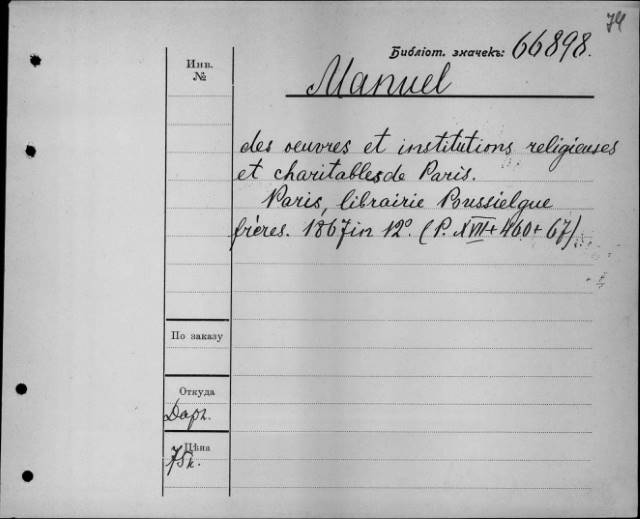 74
Библіот. значекъ: 66898.
Инв. №
Manuel
des oeuvres et institutions religieuses
et charitables de Paris.
Paris, librairie Poussielgue
frères. 1867 in 12° (P. XVII+460+67).
По заказу
Откуда
Цѣна
75к.